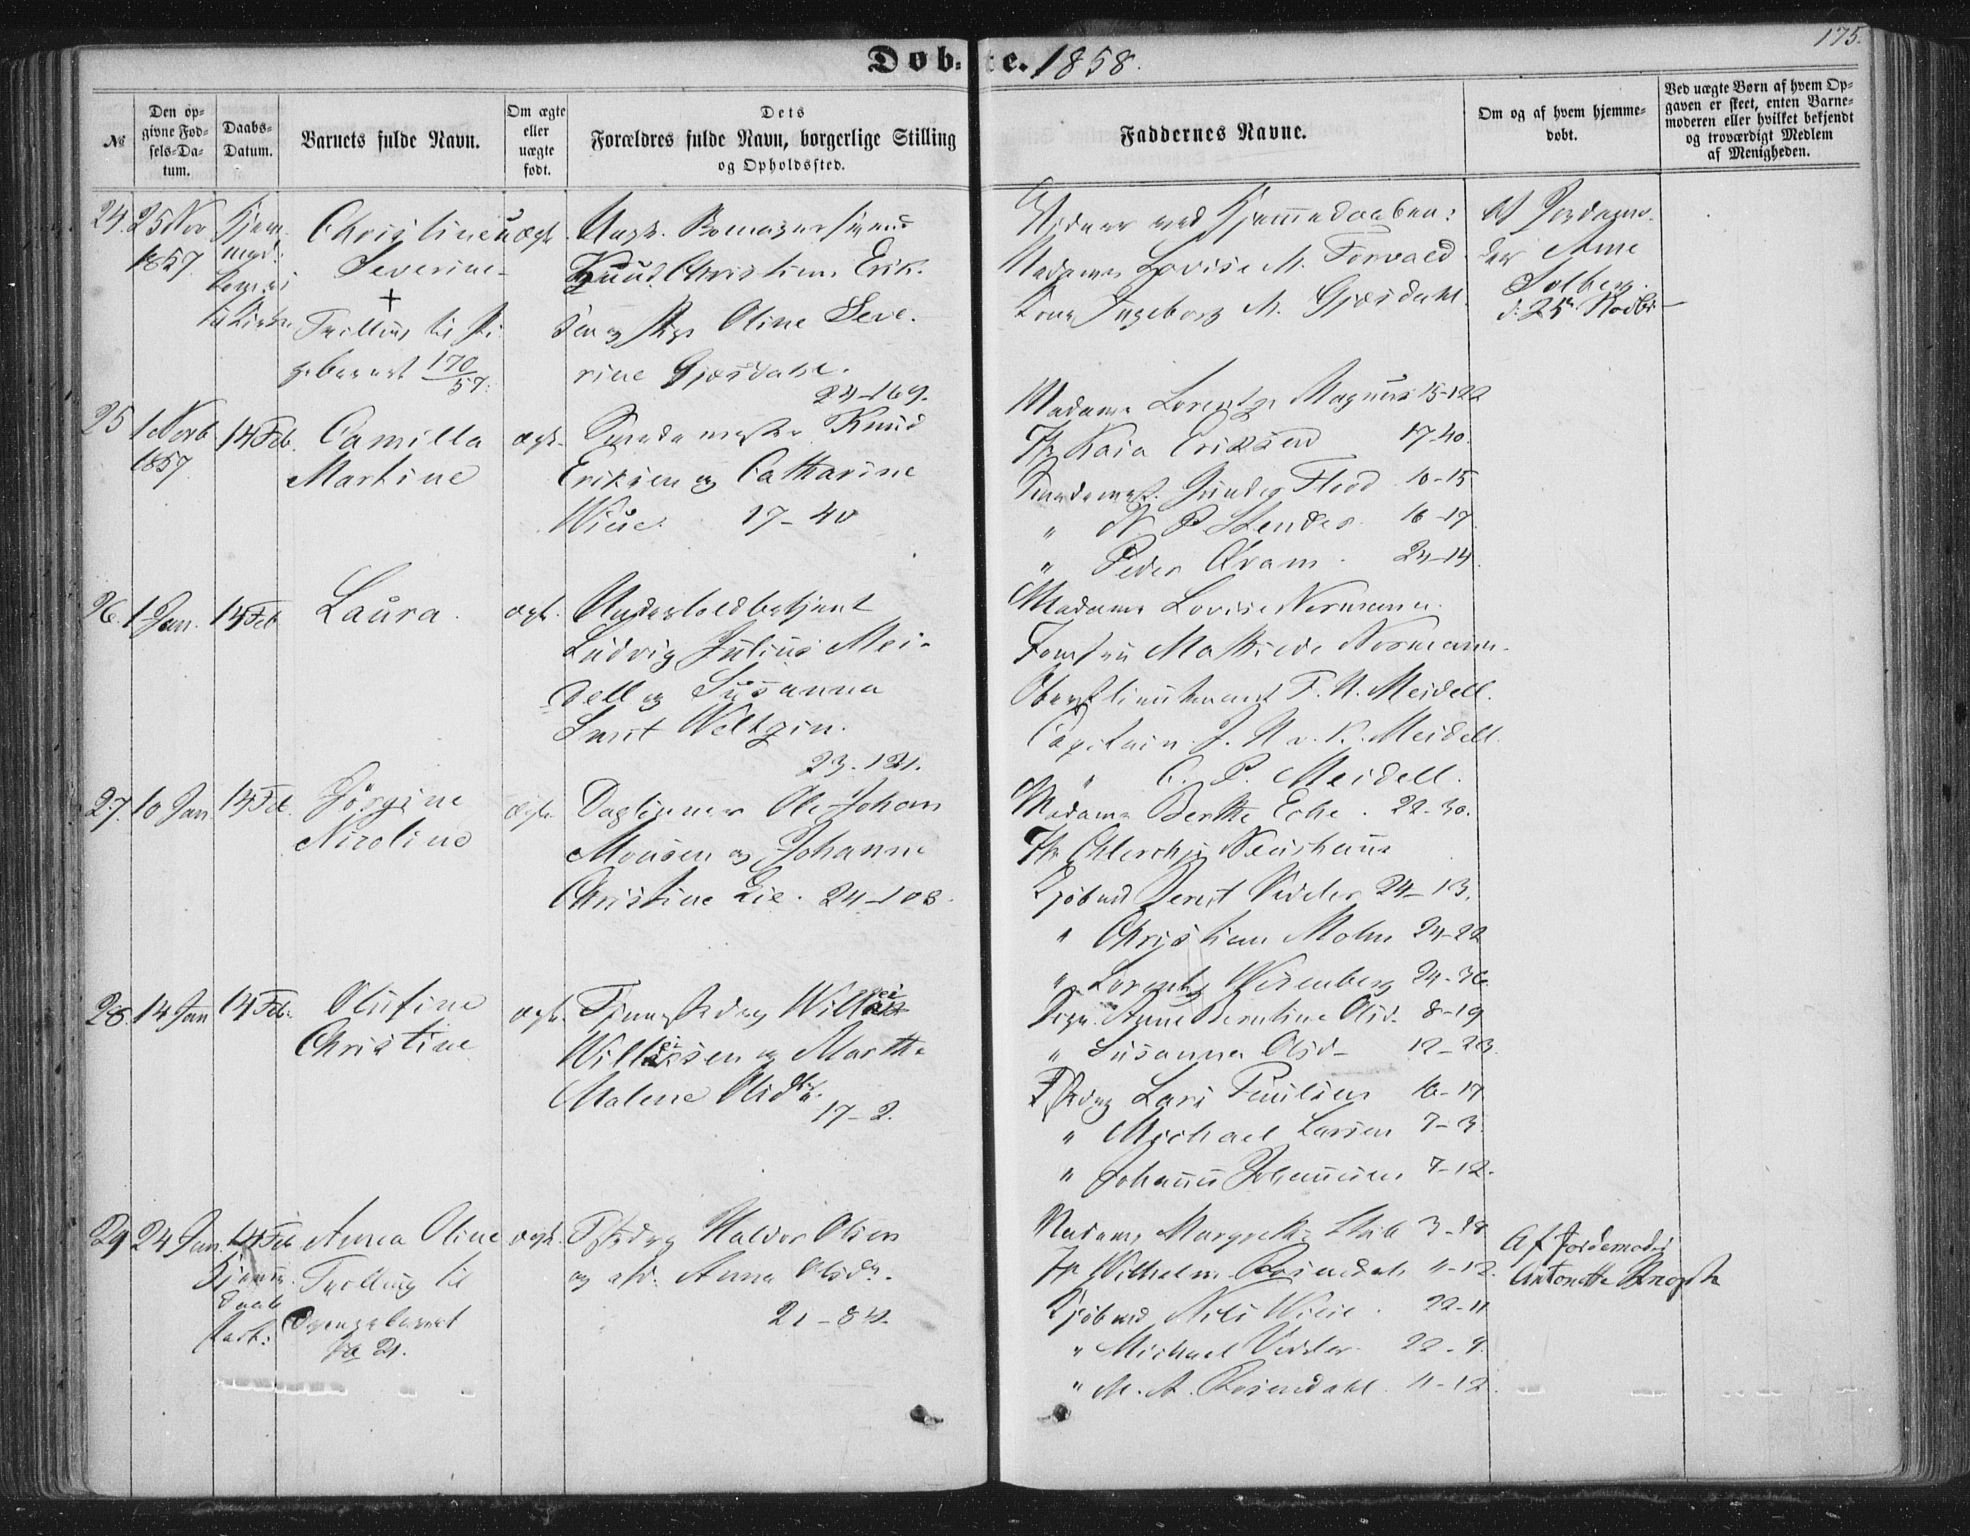 175.
Døb- te. 1858.
№
Den op-
givne Fød-
sels-Da-
tum.
Daabs-
Datum.
Barnets fulde Navn.
Om ægte
eller
uægte
født.
Dets
Forældres fulde Navn, borgerlige Stilling
og Opholdssted.
Faddernes Navne.
Om og af hvem hjemme-
døbt.
Ved uægte Børn af hvem Op-
gaven er skeet, enten Barne-
moderen eller hvilket bekjendt
og troværdigt Medlem
af Menigheden.
24. 25 Nov
1857
Christine
Severine
+
Tvilling til Pi
gebarnet 170/57.
uægte
Ungk.
Knud Christian Erik-
sen og Pige Oline Seve-
rine Gjæsdahl.
24-169.
Vidner ved Hjemmedaaben:
Madame Lovise M. Torvald
Kone Ingeborg M. Gjæsdahl
Af Jordemo-
der Ane
Solberg
d. 25 Novbr
25 1 Novb
1857
14 Feb.
Camilla
Martine
ægte.
Smedemester Knud
Eriksen og Catharine
Wiese. 17-40
Madame Lorentze Magnus 15-122
Jfr Kaia Eriksen 17-40.
Smedemest. Gunder Flood 10-15
" N P Stender 16-17.
" Peder Qvam. 24-14.
26. 1 Jan. 14 Feb
Laura.
ægte.
Undertoldbetjent
Ludvig Julius Mei-
dell og Susanna
Smit Weltzin.
23-121.
Madame Lovise Normann.
Jomfru Mathilde Normann.
Oberstlieutenant F. N. Meidell.
Capitain J. N. v. K. Meidell.
" C. P. Meidell.
27. 10 Jan 14 Feb.
Jørgine
Nicoline
ægte.
Daglønner Ole Johan
Monsen og Johanne
Christine Lie. 24-108.
Madame Berthe Eche. 22-30.
Jfr Neushaus
Kjøbmd Berent Vedeler 24-13.
" Christian Mohn 24-22
" Lorentz Wesenberg 24-36
28. 14 Jan 14 Feb.
Olufine
Christine
ægte.
Willei
Willeisen og Marthe
Malene Olsdtr.
17-2.
Pige Anne Berntine Olsd. 8-19
" Susanna Olsd- 12-23.
Lars Poulsen 16-17
" Michael Larsen 7-3.
" Johannes Johannesen 7-12.
29 24 Jan. 14 Feb
Hjemme
daab
stadf.
Anna Oline
Tvilling til
Drengebarnet
№ 21.
ægte.
Haldor Olsen
og Anna Olsdr.
21-84.
Madame Margrethe 3-18
Jfr Wilhelmine Rosendahl 11-12.
Kjøbmd Nils Wiese. 22-11
" Michael Vedeler. 22-9.
" M. A. Rosendahl. 11-12.
Af Jordemoder
Antonette